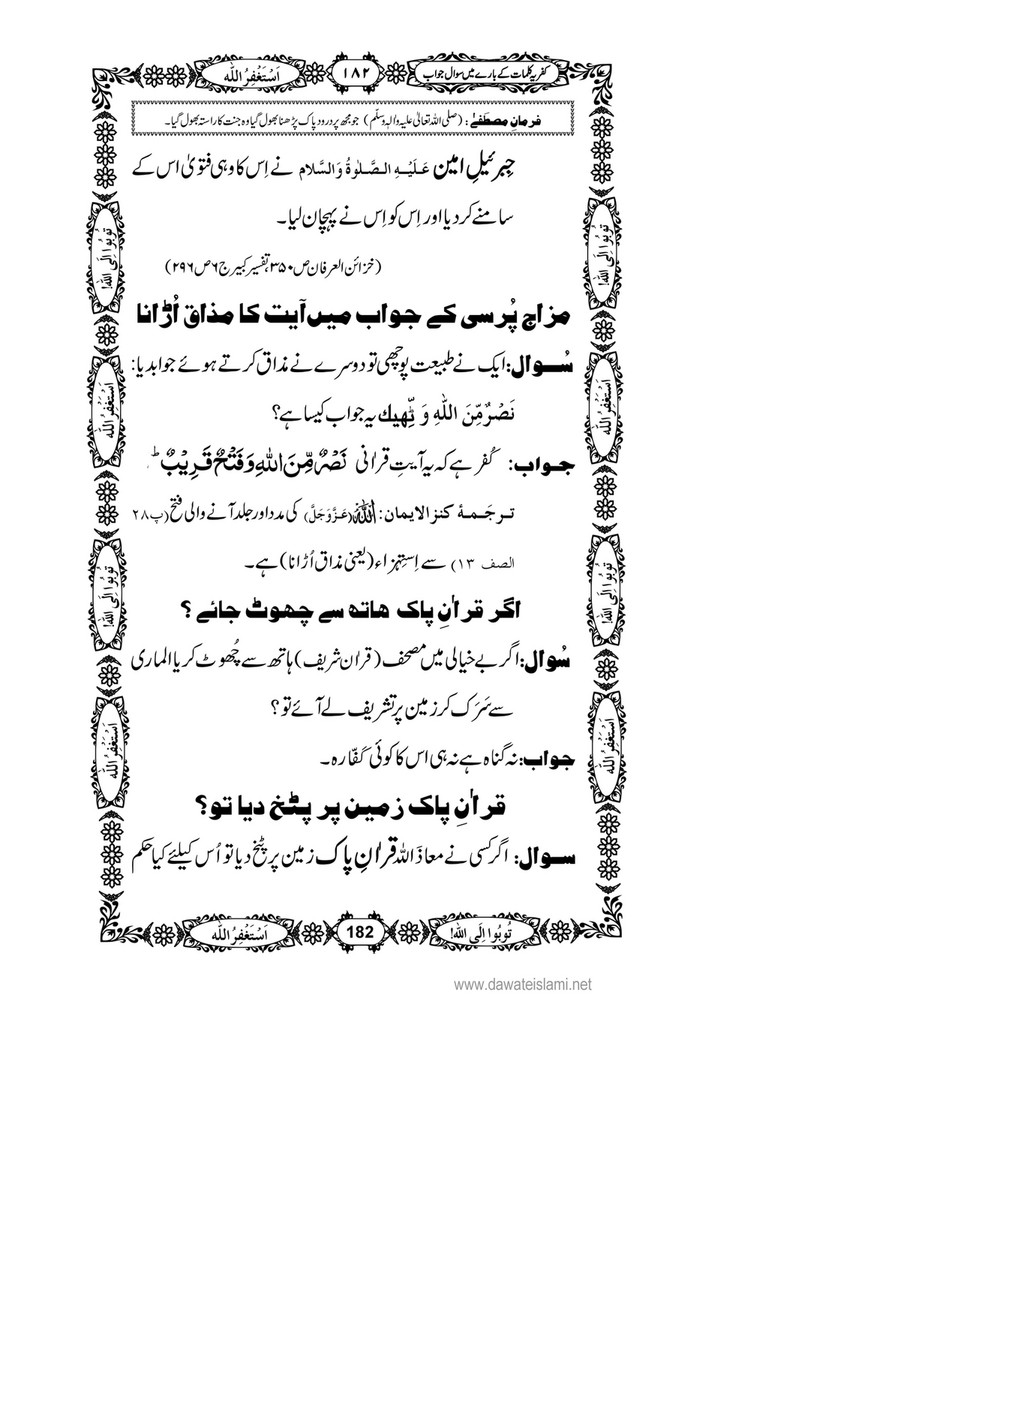 کفریہ کلمات کے بارے میں سوال جواب
۱۸۲
اَسْتَغْفِرُ اللّٰه
فرمانِ مصطَفٰے : (صلی اللہ تعالیٰ علیہ واٰلہٖ وسلّم) جو مجھ پر درود پاک پڑھنا بھول گیا وہ جنت کا راستہ بھول گیا۔
جِبرئیلِ امین عَلَیْہِ الصَّلٰوۃُ وَالسَّلام نے اِس کا وہی فتویٰ اس کے
سامنے کر دیا اور اِس کو اِس نے پہچان لیا۔
(خزائن العرفان ص ۳۵۰، تفسیر کبیر ج ۶ ص ۲۹۶)
مزاج پُرسی کے جواب میں آیت کا مذاق اُڑانا
سُوال: ایک نے طبیعت پوچھی تو دوسرے نے مذاق کرتے ہوئے جواب دیا:
نَصْرٌ مِّنَ اللّٰهِ وَ ٹّھِیك یہ جواب کیسا ہے؟
جواب: کُفر ہے کہ یہ آیتِ قراٰنی نَصْرٌ مِّنَ اللّٰهِ وَ فَتْحٌ قَرِیْبٌؕ
ترجَمۂ کنزالایمان: اللّٰہ (عَزَّوَجَلَّ) کی مدد اور جلد آنے والی فتح (پ ۲۸
الصف ۱۳) سے اِستِہزاء (یعنی مذاق اُڑانا) ہے۔
اگر قراٰنِ پاک ہاتھ سے چھوٹ جائے ؟
سُوال: اگر بے خیالی میں مصحف (قراٰن شریف) ہاتھ سے چُھوٹ کر یا الماری
سے سَرَک کر زمین پر تشریف لے آئے تو؟
جواب: نہ گناہ ہے نہ ہی اس کا کوئی کَفّارہ۔
قراٰنِ پاک زمین پر پٹخ دیا تو؟
سوال: اگر کسی نے معاذَ اللہ قراٰنِ پاک زمین پر پٹخ دیا تو اُس کیلئے کیا حکم
تُوبُوا اِلَی اللّٰه!
اَسْتَغْفِرُ اللّٰه
تُوبُوا اِلَی اللّٰه!
اَسْتَغْفِرُ اللّٰه
تُوبُوا اِلَی اللّٰه!
اَسْتَغْفِرُ اللّٰه
تُوبُوا اِلَی اللّٰه!
اَسْتَغْفِرُ اللّٰه
تُوبُوا اِلَی اللّٰه!
182
اَسْتَغْفِرُ اللّٰه
www.dawateislami.net